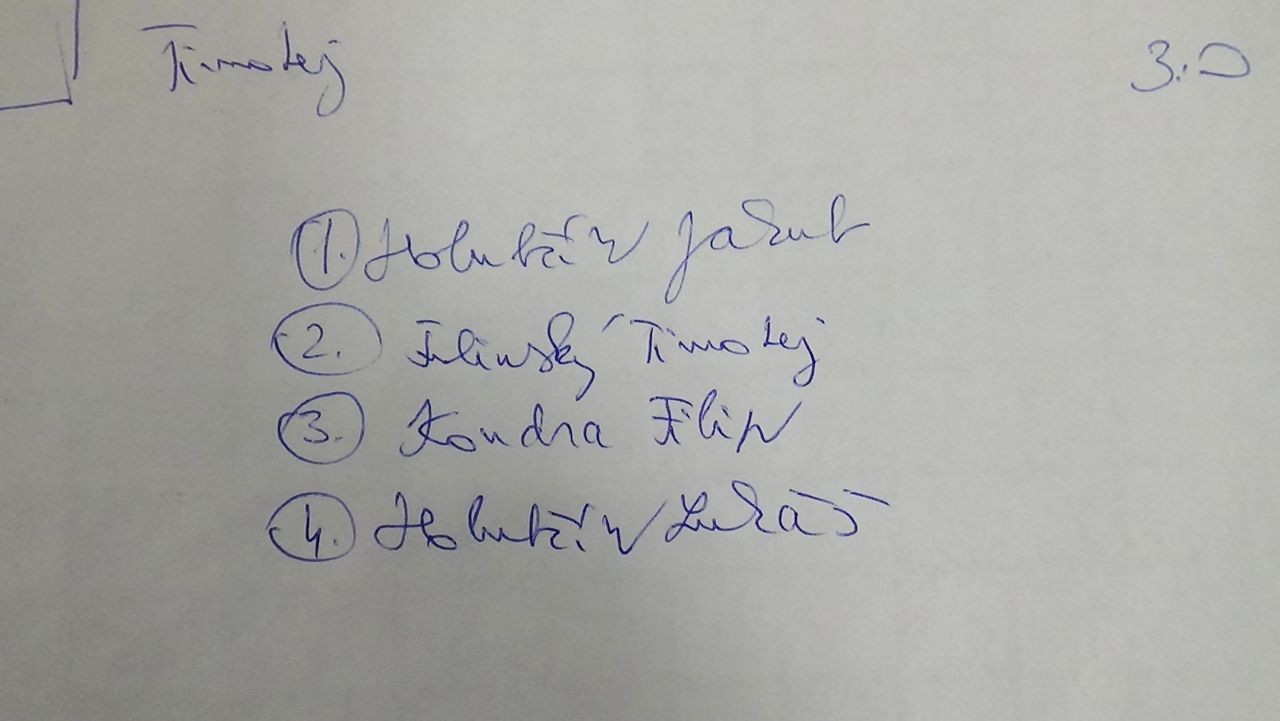 Timotej 3.D
1. Holubčík Jakub
2. Filinský Timotej
3. Kondra Filip
4. Holubčík Lukáš